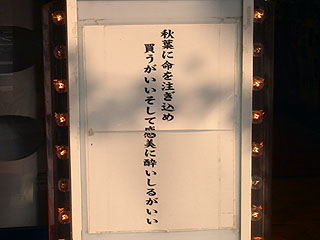 秋葉に命を注ぎ込め
買うがいいそして惑美に酔いしるがいい